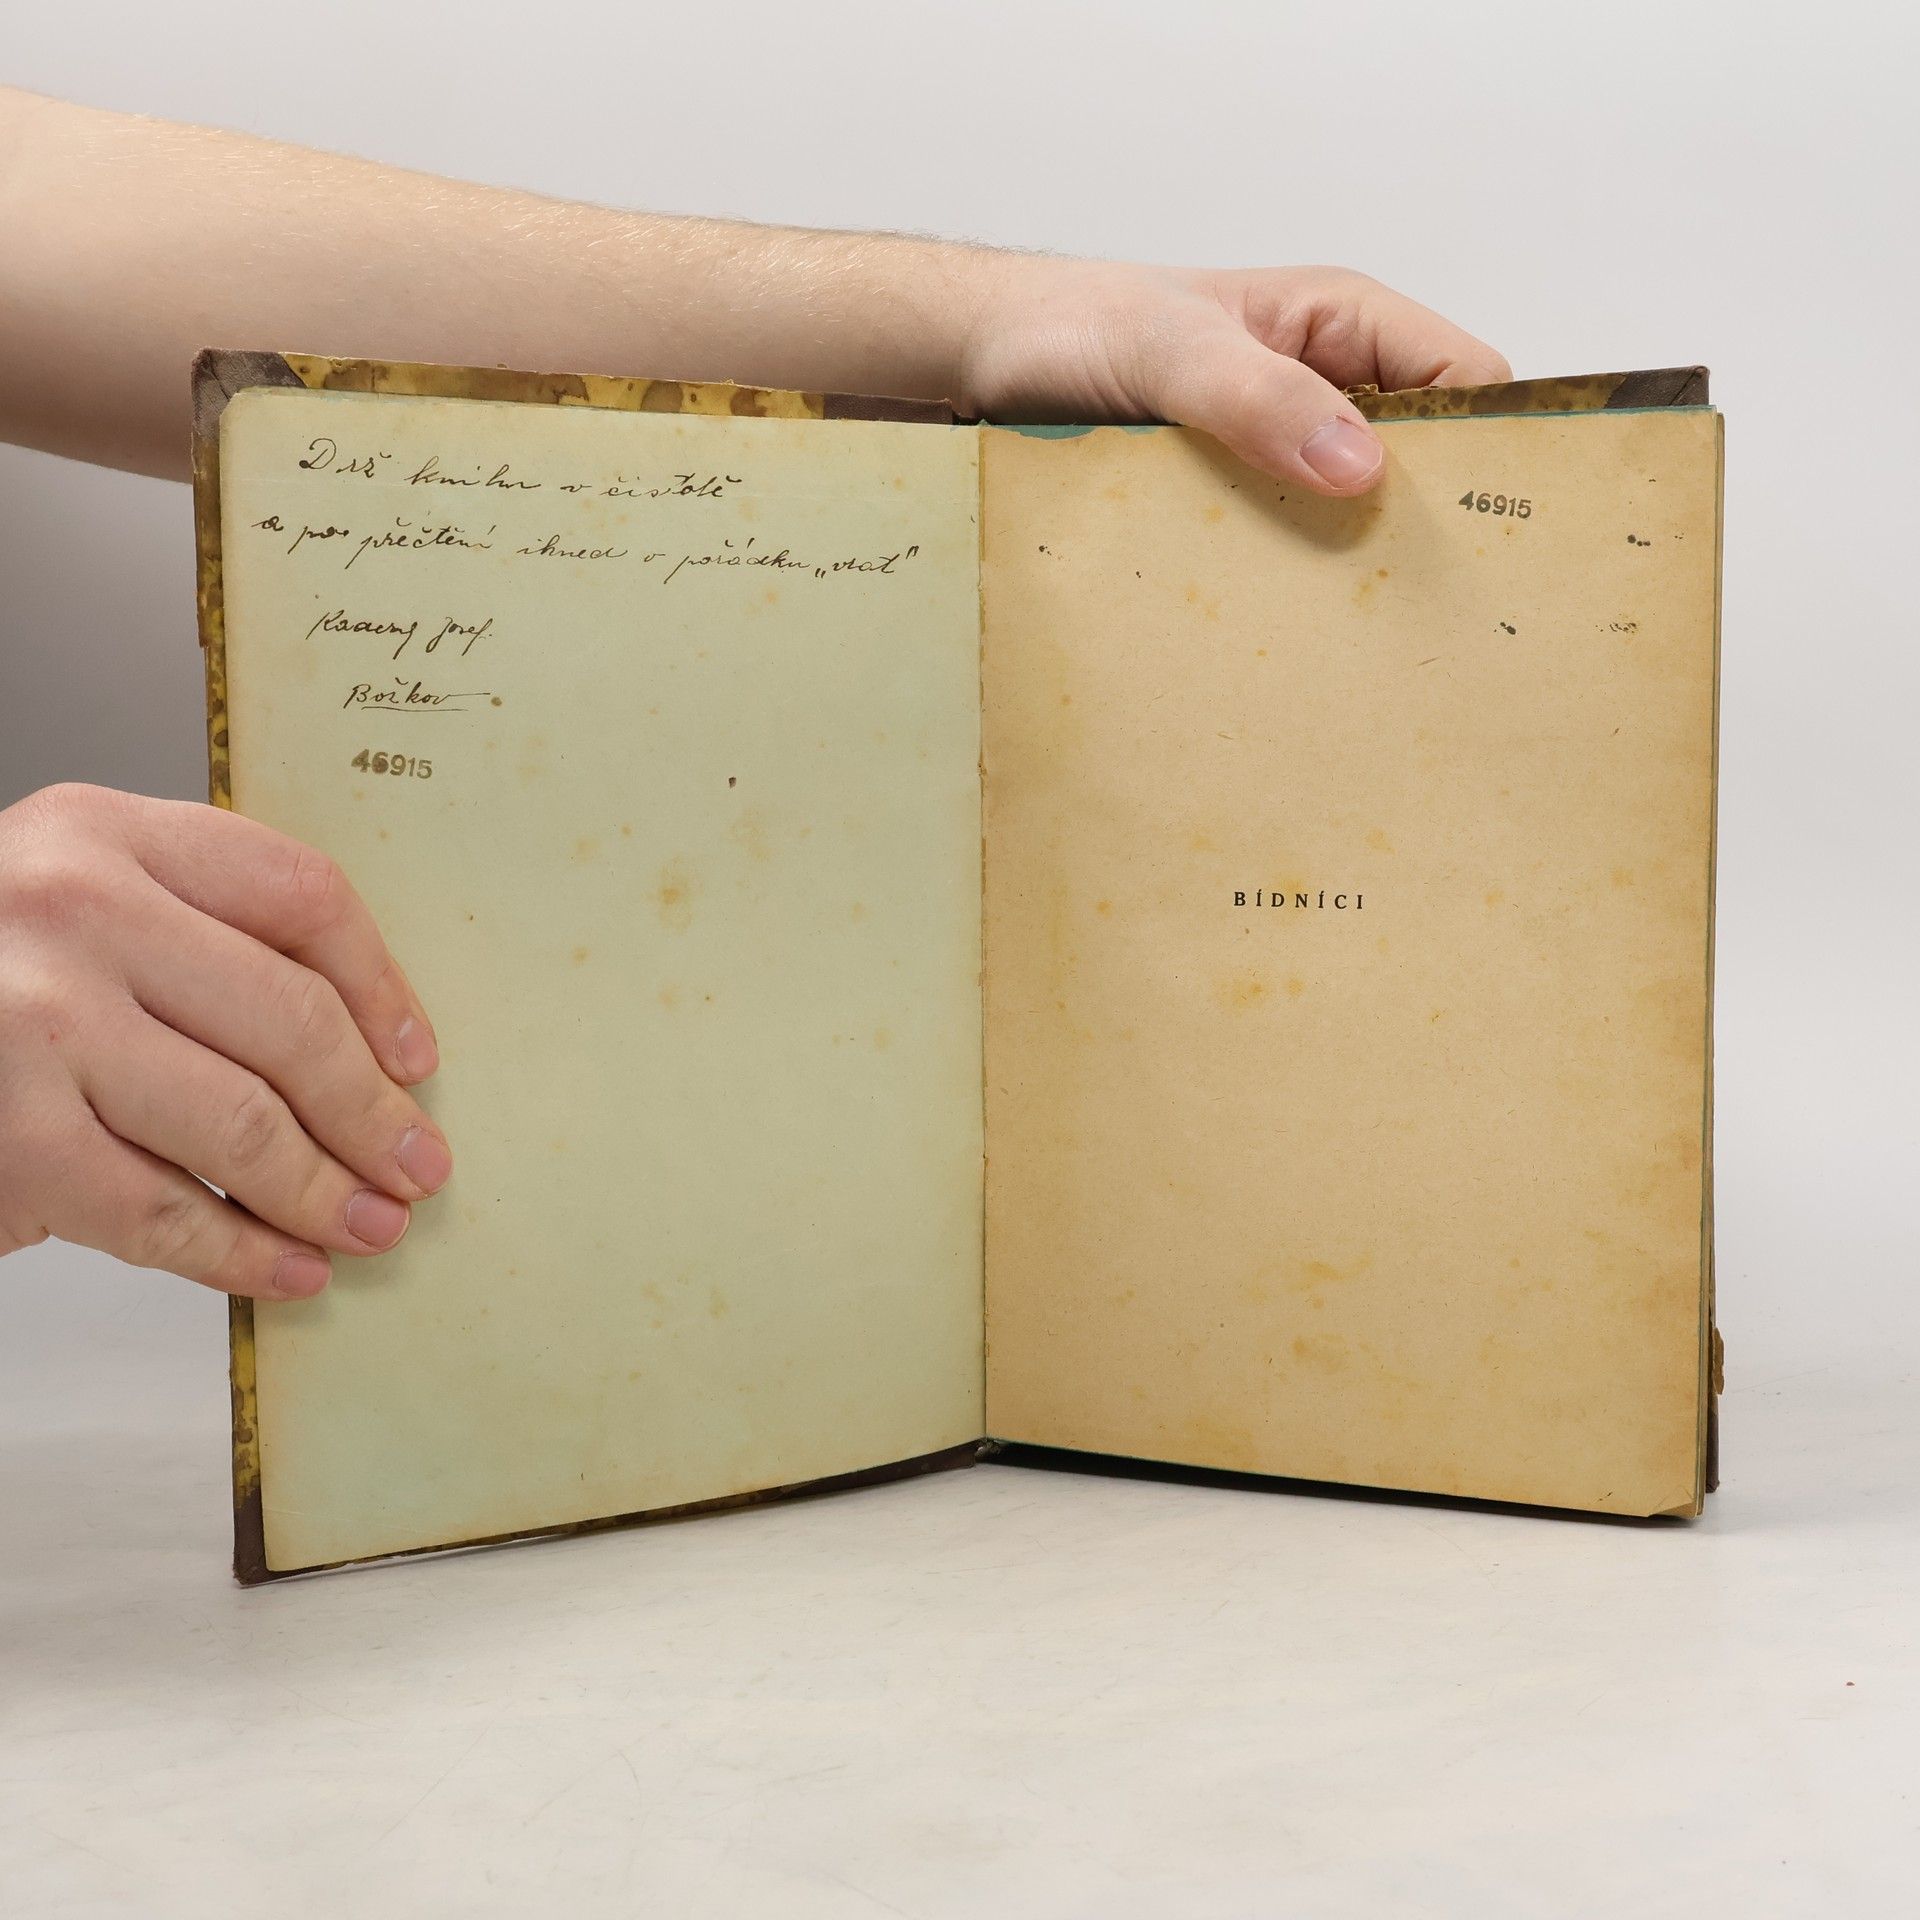 Drž knihu v čistotě
a po přečtení ihned v pořádku „vrať"
Josef.
Božkov
46915
46915
BÍDNÍCI